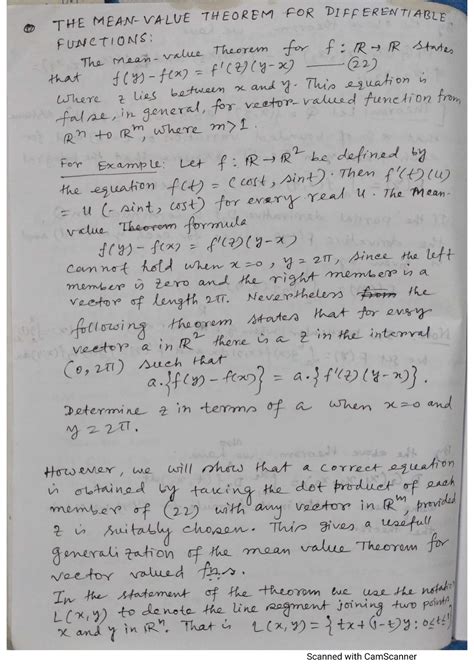 THE MEAN-VALUE THEOREM FOR DIFFERENTIABLE
FUNCTIONS:
The Mean-value Theorem for f: R → R states
that f(y) - f(x) = f'(z)(y-x) —— (22)
where z lies between x and y. This equation is
false, in general, for vector valued function from
Rⁿ to Rᵐ, where m>1.
For Example: Let f: R → R² be defined by
the equation f(t) = (cost, sint). Then f'(t)(u)
= u(-sint, cost) for every real u. The Mean-
value Theorem formula
f(y) - f(x) = f'(z)(y-x)
cannot hold when x=0, y=2π, since the left
member is zero and the right member is a
vector of length 2π. Nevertheless from the
following theorem states that for every
vector a in R² there is a z in the interval
(0, 2π) such that
a.{f(y) - f(x)} = a.{f'(z)(y-x)}.
Determine z in terms of a when x=0 and
y=2π.
However, we will show that a correct equation
is obtained by taking the dot product of each
member of (22) with any vector in Rᵐ, provided
z is suitably chosen. This gives a usefull
generalization of the mean value Theorem for
vector valued fns.
In the statement of the theorem we use the notation
L(x,y) to denote the line segment joining two points
x and y in Rⁿ. That is L(x,y) = {tx+(1-t)y: 0≤t≤1}
Scanned with CamScanner